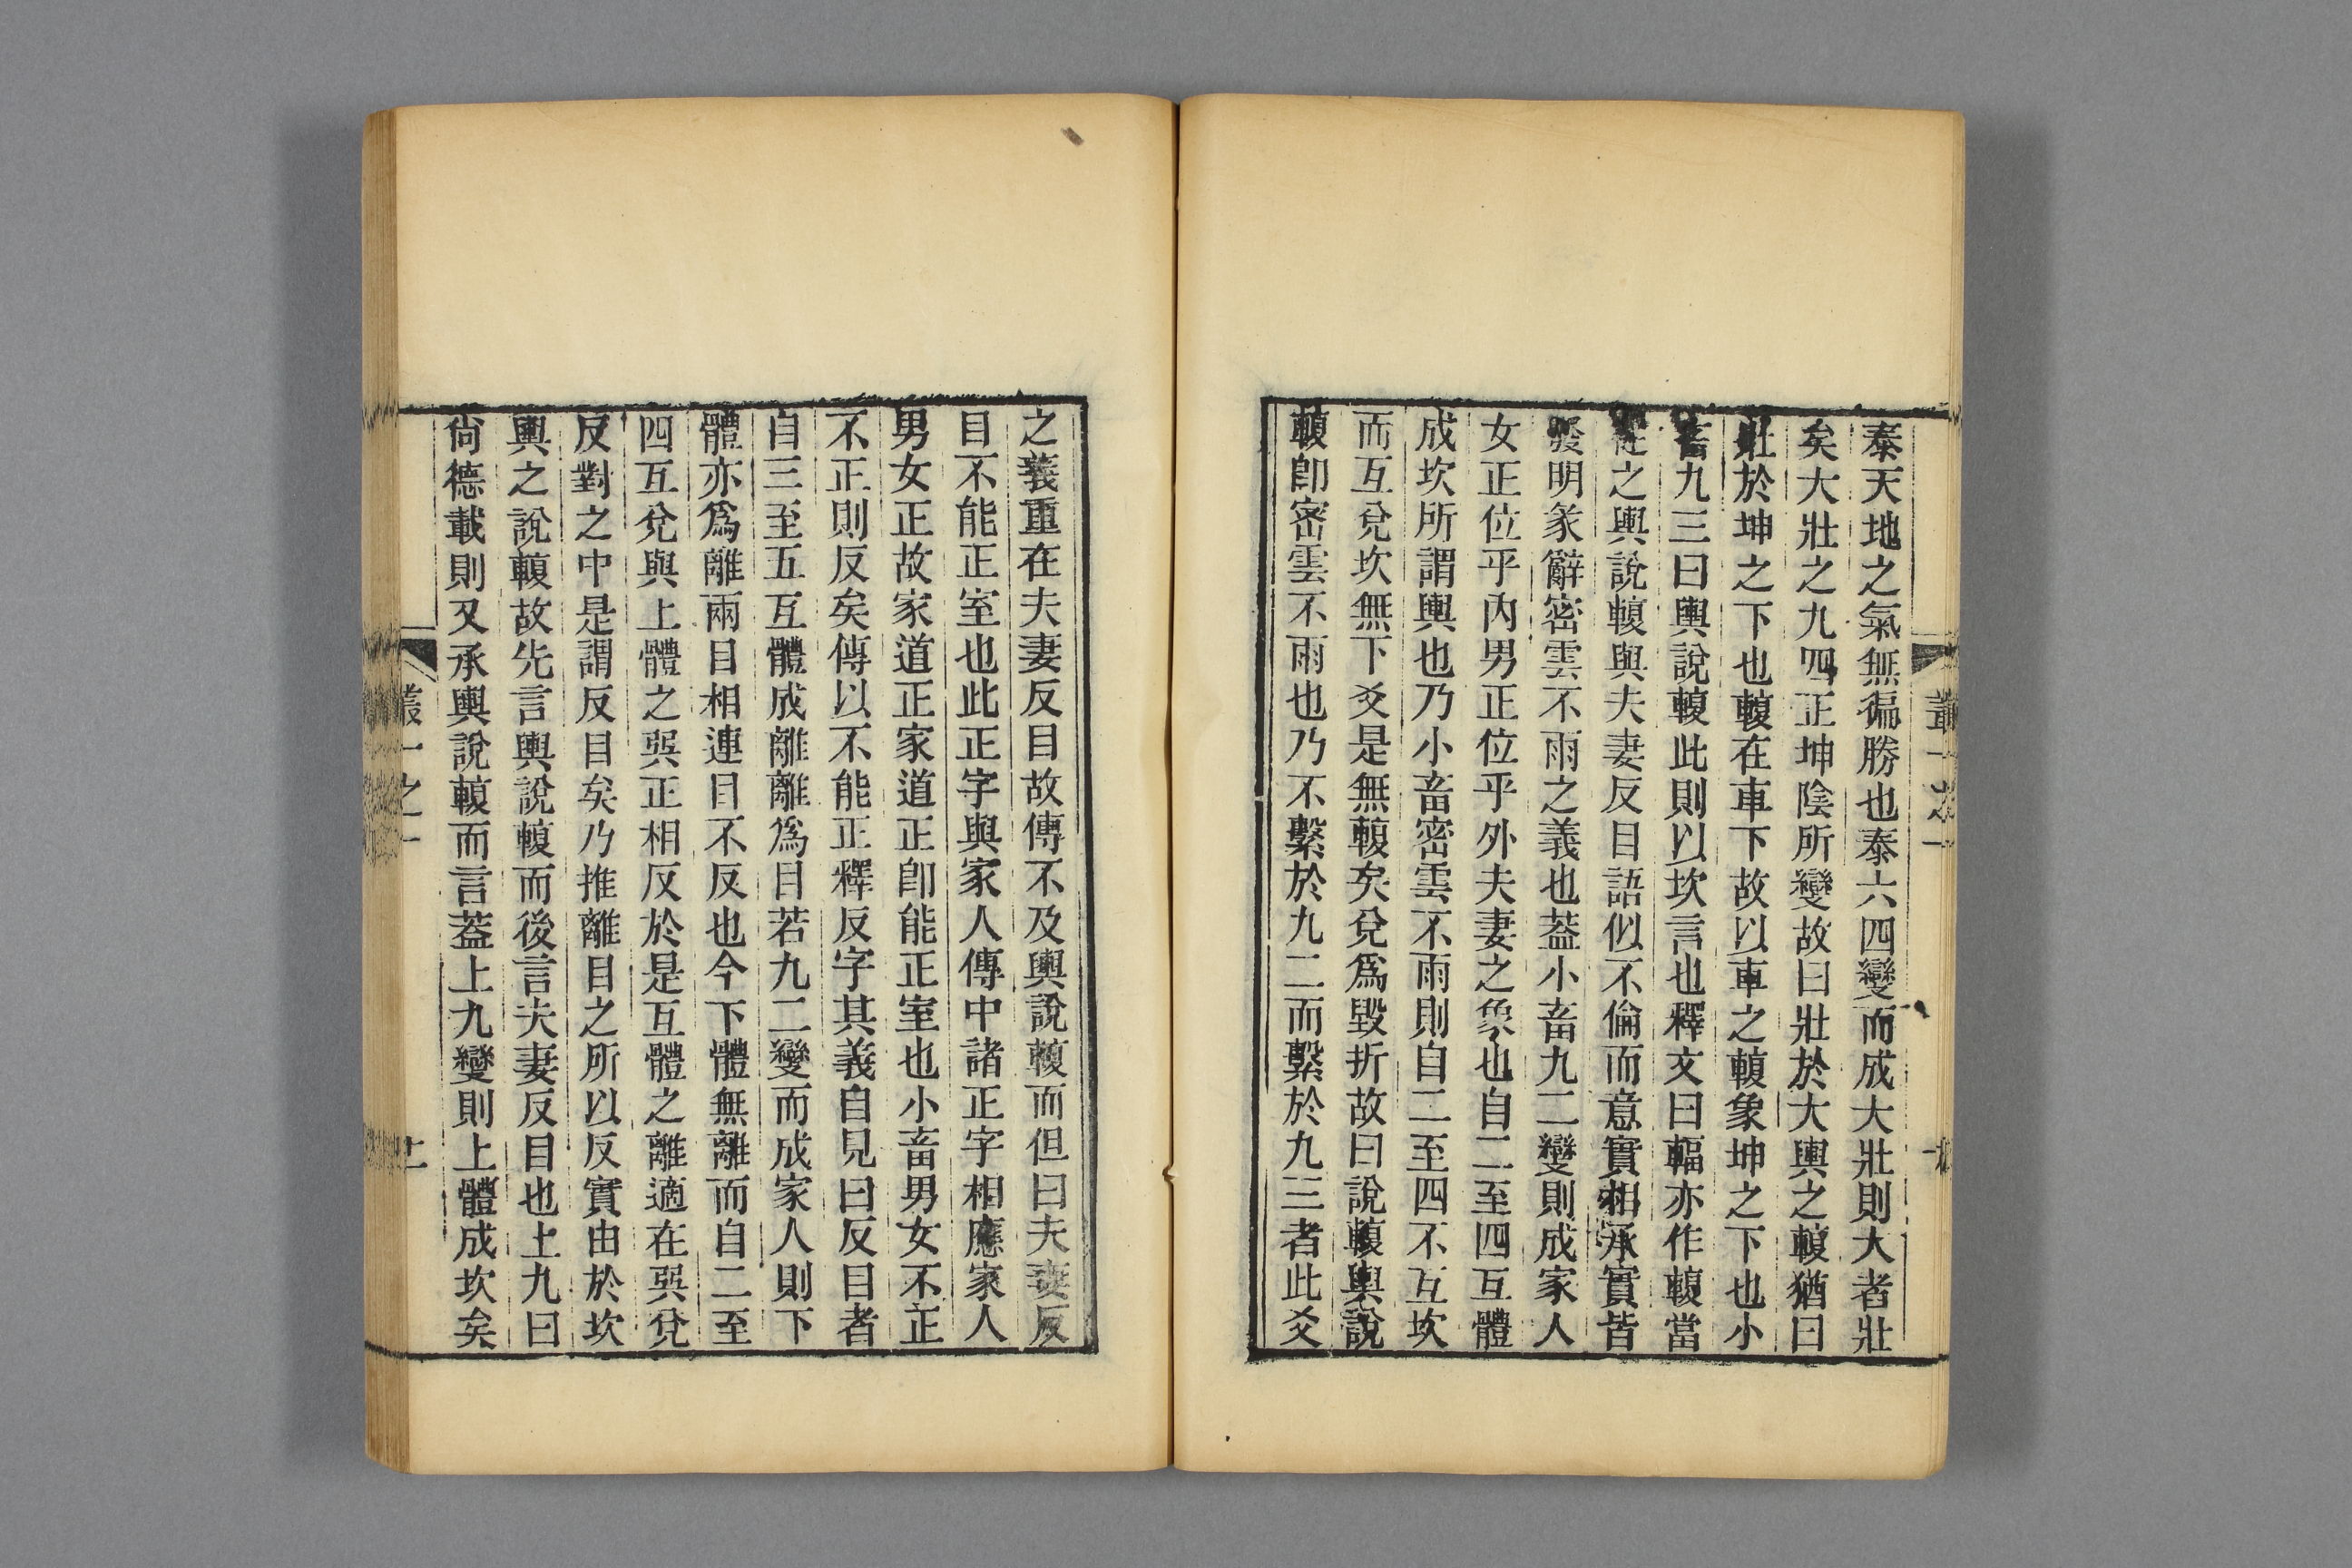 泰天地之氣無徧勝也泰六四變而成大壯則大者壯
矣大壯之九四正坤陰所變故曰壯於大輿之輹猶曰
壯於坤之下也輹在車下故以車之輹象坤之下也小
畜九三曰輿說輹此則以坎言也釋文曰輻亦作輹當
從之輿說輹與夫妻反目語似不倫而意實相承實皆
發明彖辭密雲不雨之義也葢小畜九二變則成家人
女正位乎內男正位乎外夫妻之象也自二至四互體
成坎所謂輿也乃小畜密雲不雨則自二至四不互坎
而互兌坎無下爻是無輹矣兌為毀折故曰說輹輿說
輹卽密雲不雨也乃不繫於九二而繫於九三者此爻
叢一之一
之義重在夫妻反目故傳不及輿說輹而但曰夫妻反
目不能正室也此正字與家人傳中諸正字相應家人
男女正故家道正家道正卽能正室也小畜男女不正
不正則反矣傳以不能正釋反字其義自見曰反目者
自三至五互體成離離為目若九二變而成家人則下
體亦為離兩目相連目不反也今下體無離而自二至
四互兌與上體之巽正相反於是互體之離適在巽兌
反對之中是謂反目矣乃推離目之所以反實由於坎
輿之說輹故先言輿說輹而後言夫妻反目也上九曰
尙德載則又承輿說輹而言葢上九變則上體成坎矣
叢一之一